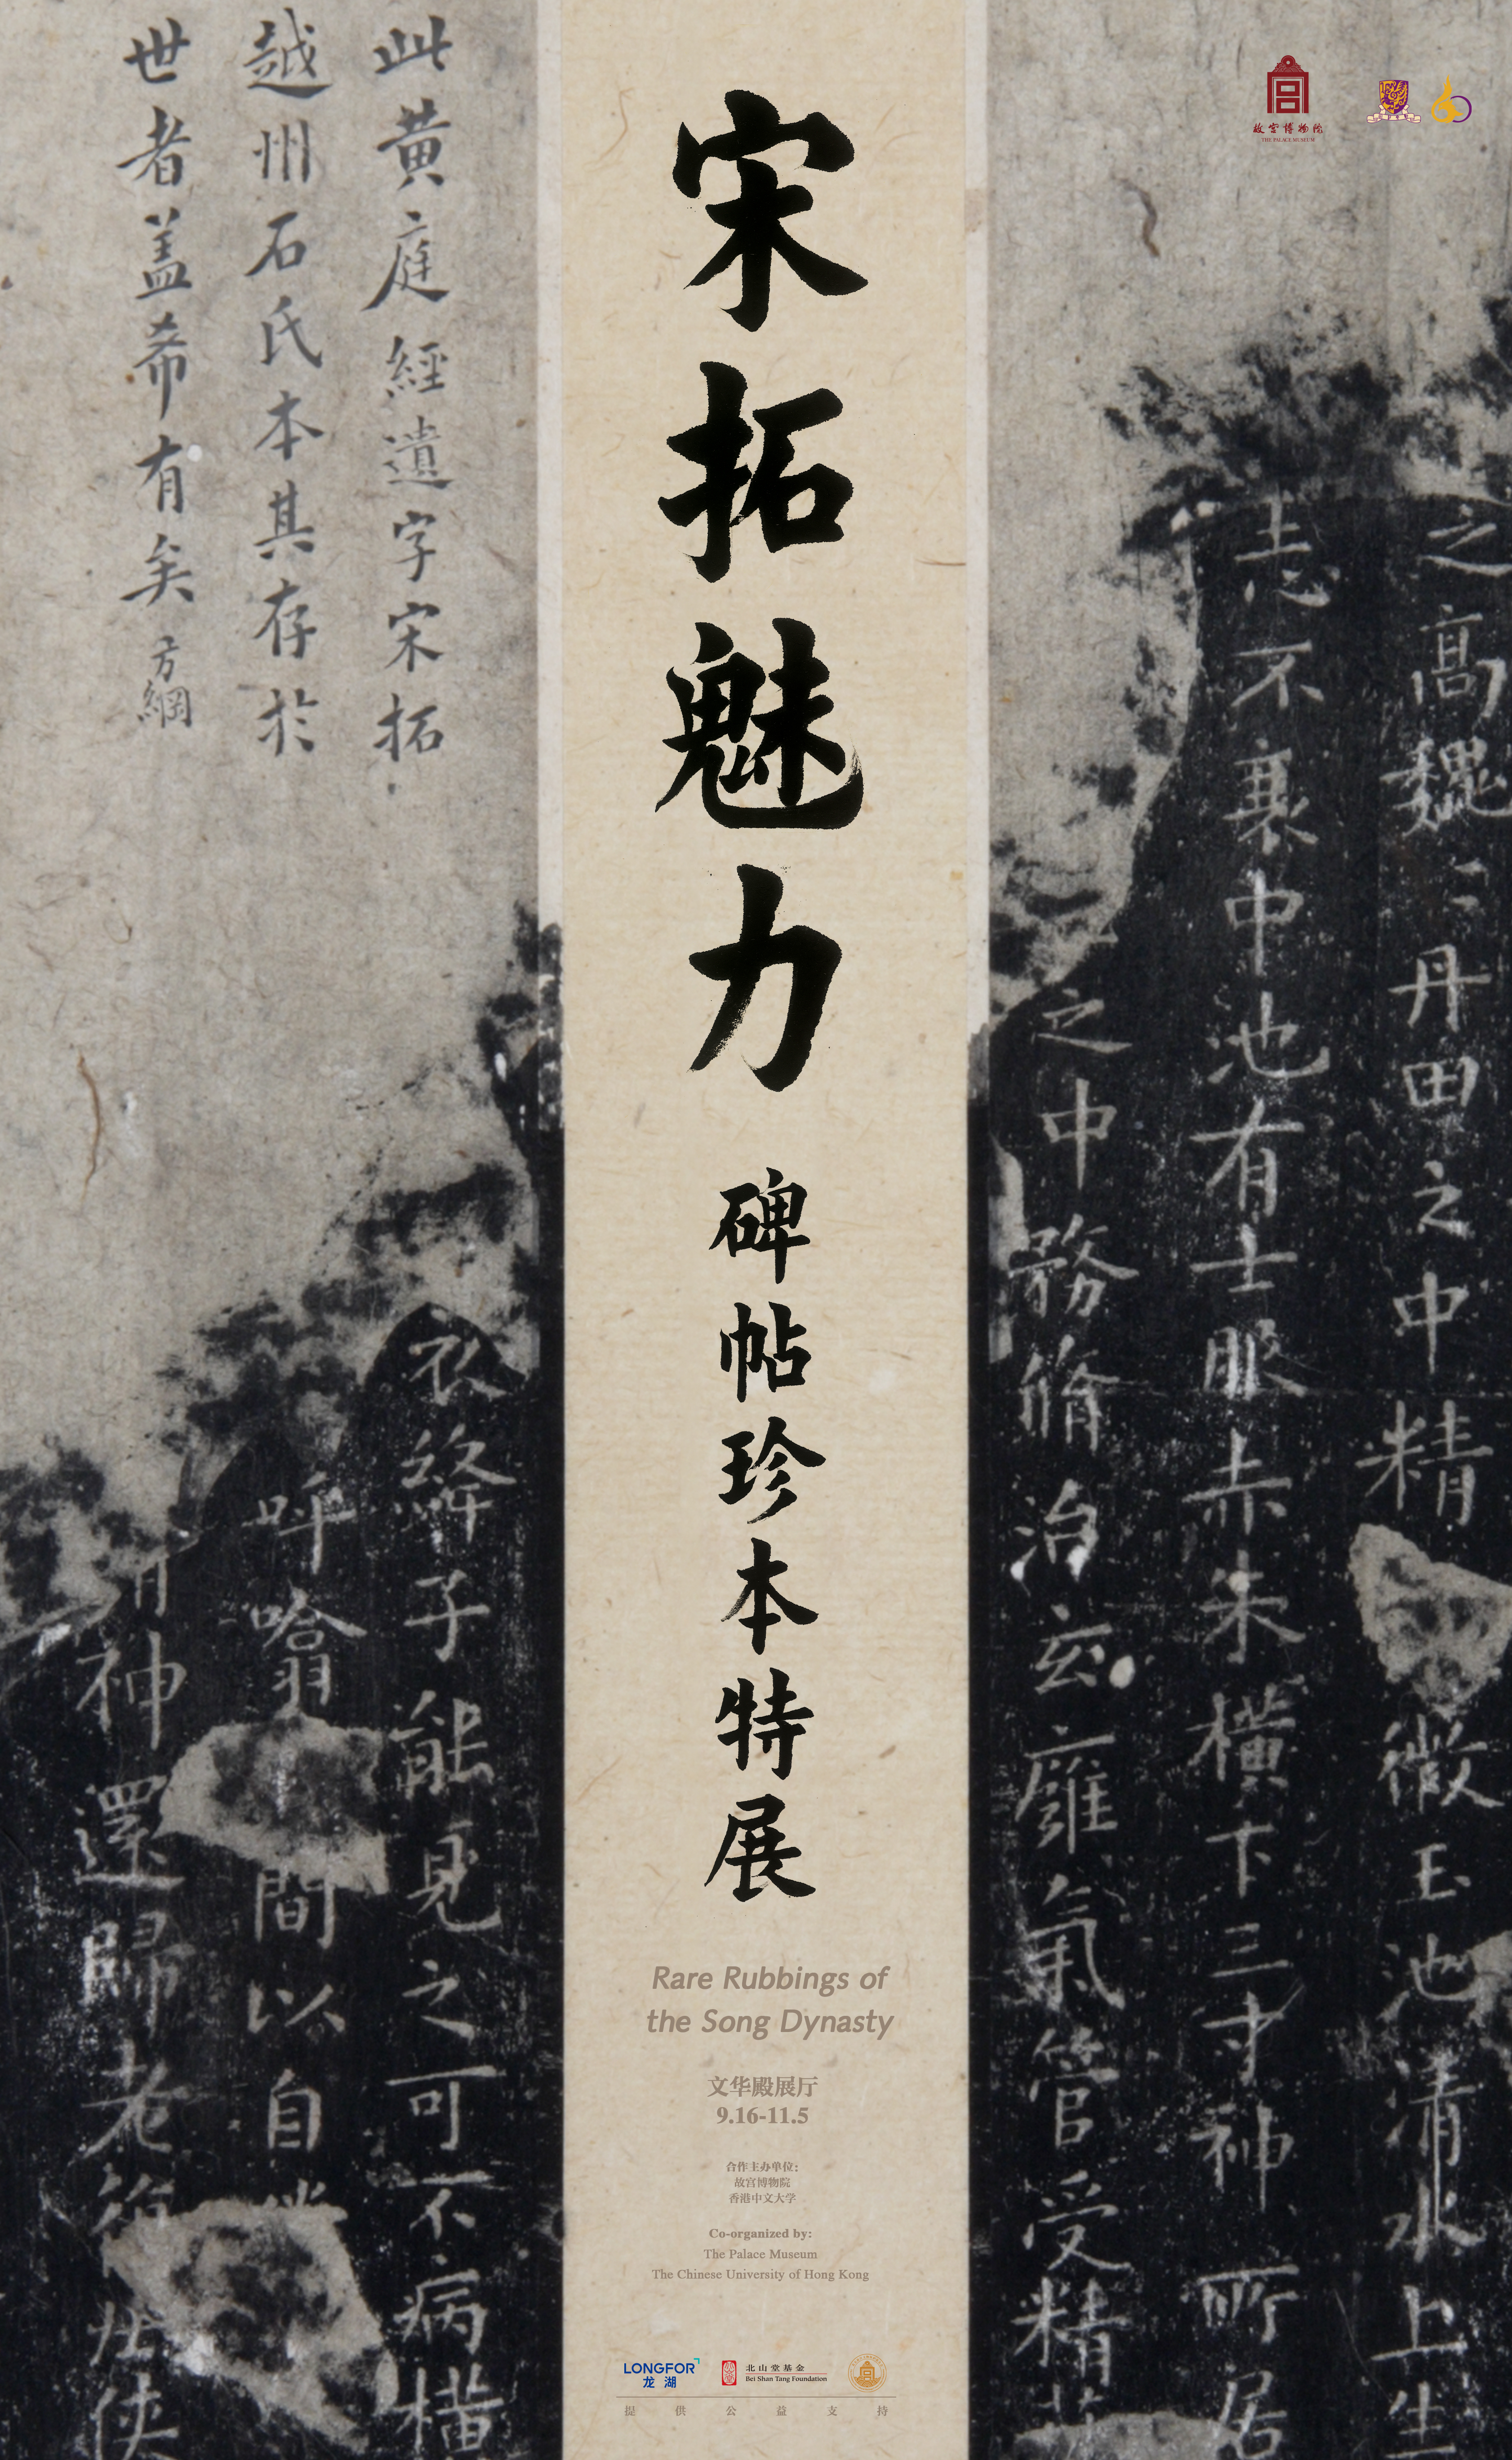 故宫博物院
THE PALACE MUSEUM
宋拓魅力
碑帖珍本特展
Rare Rubbings of
the Song Dynasty
文华殿展厅
9.16-11.5
合作主办单位:
故宫博物院
香港中文大学
Co-organized by:
The Palace Museum
The Chinese University of Hong Kong
LONGFOR
龙湖
北山堂基金
Bei Shan Tang Foundation
提供公益支持
之高巍〻丹田之中精微玉池清水上生
志不衰中池有士服赤朱横下三寸神所居
之中務脩治玄癰氣管受精
此黄庭經遺字宋拓
越州石氏本其存於
世者盖希有矣 方綱
衣絳子能見之可不病横
呼噏間以自
神還歸老
俠